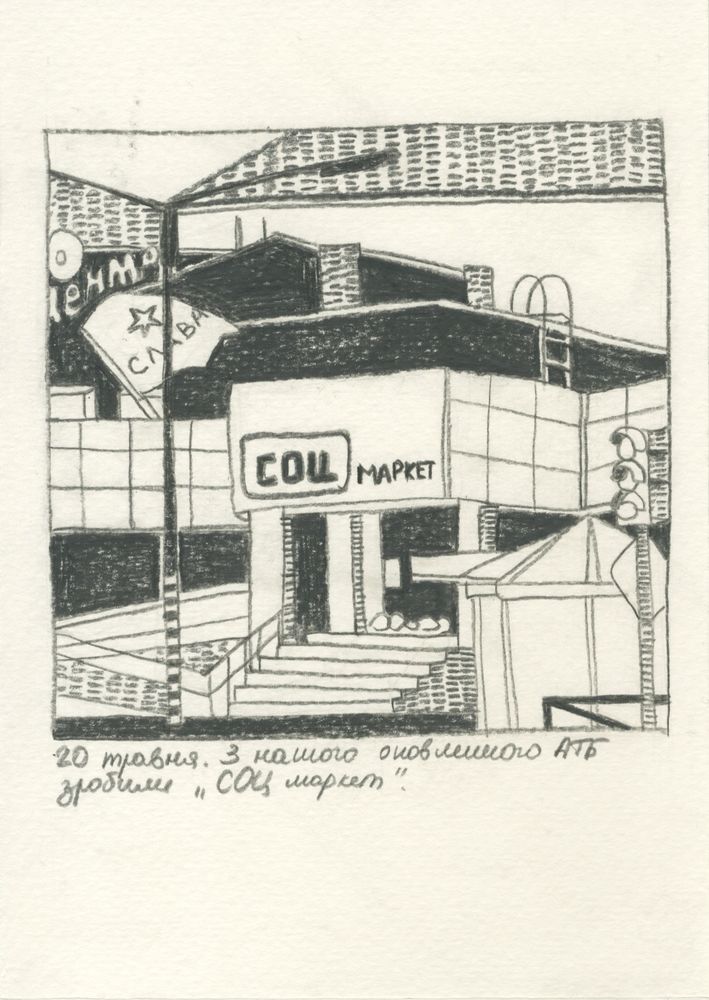 СЛАВА
СОЦ МАРКЕТ
20 травня. З нашого оновленного АТБ
зробили „СОЦ маркет".